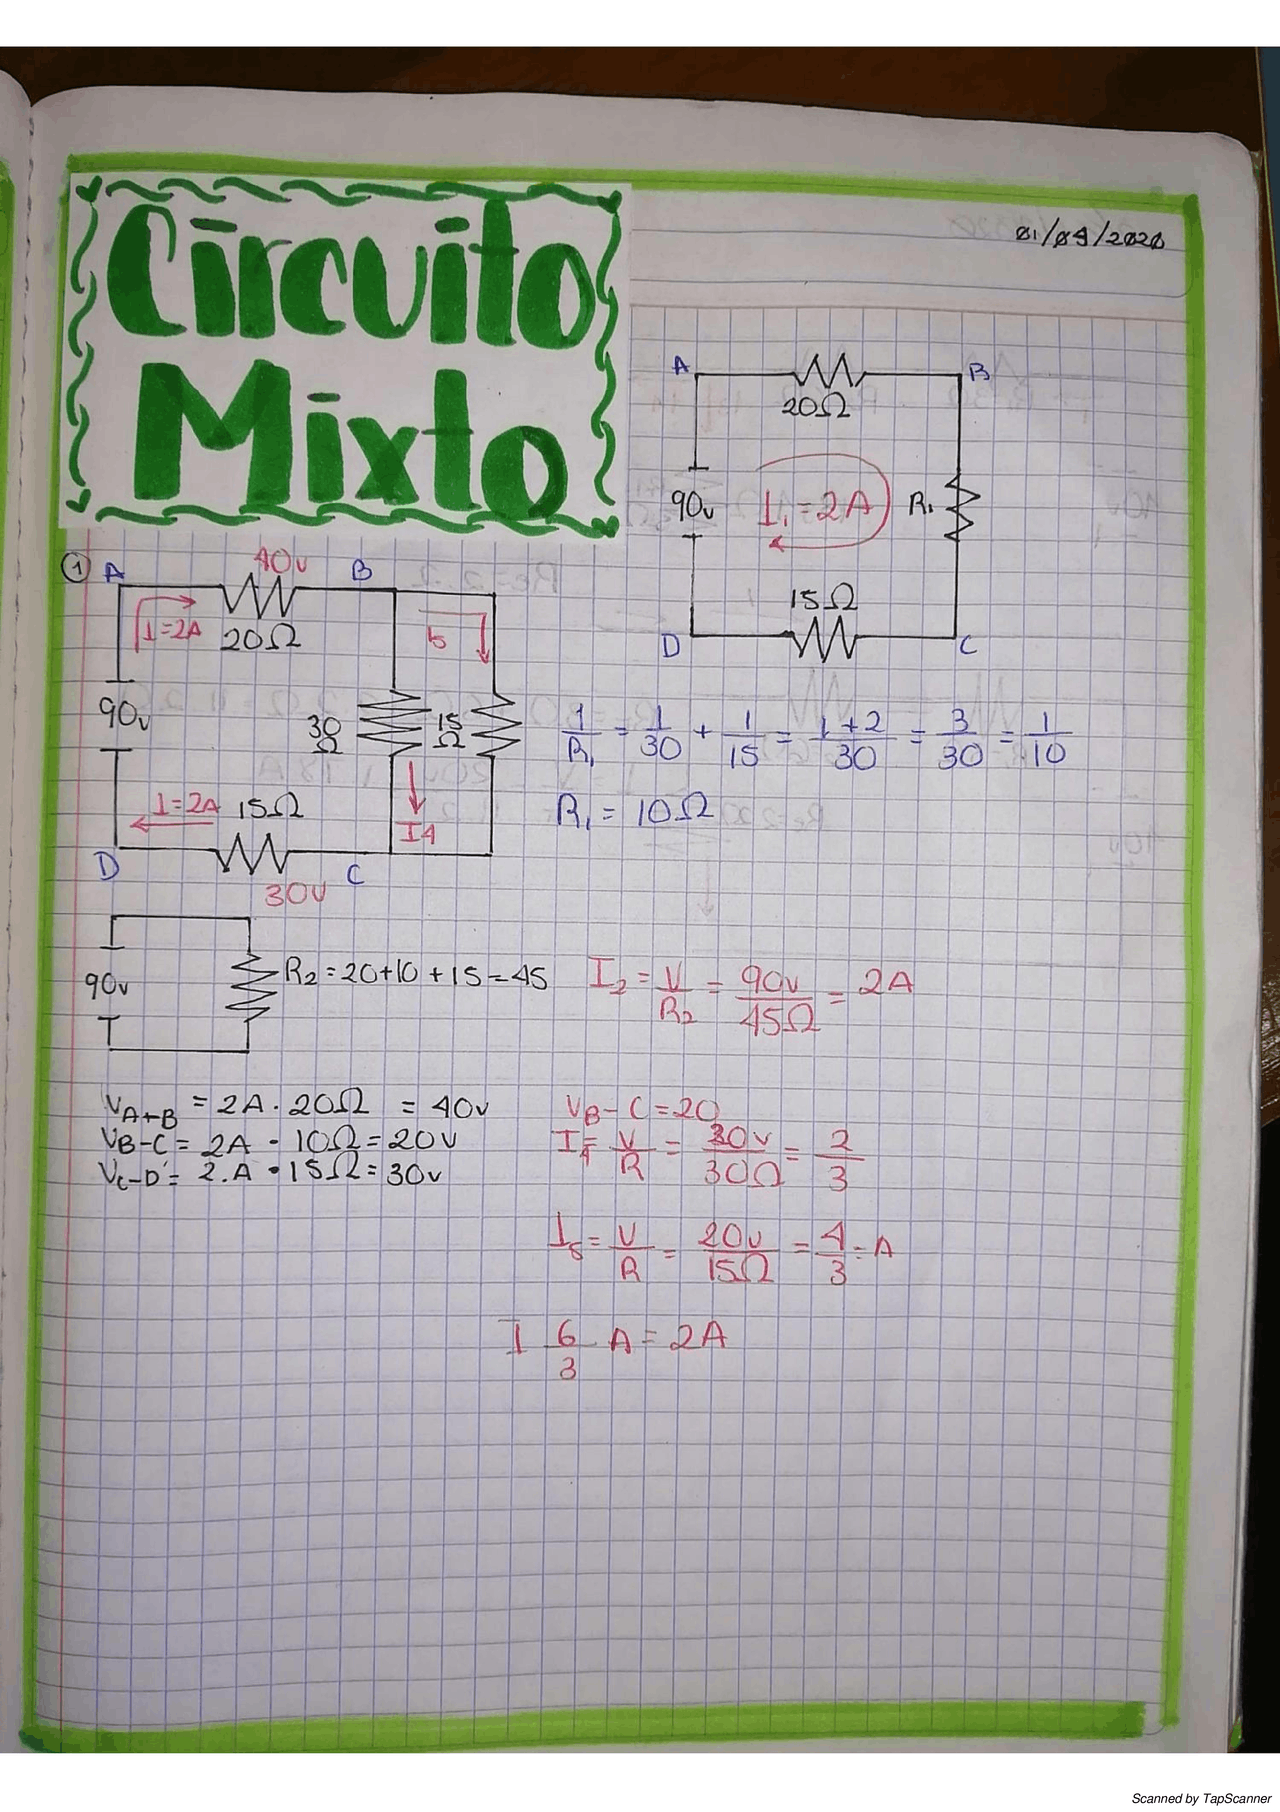 Circuito
Mixto
01/09/2020
A
20Ω
B
90v
I₁=2A
R₁
15Ω
D
C
① A
40v
B
I=2A
20Ω
5
90v
30
Ω
15
Ω
I=2A
15Ω
I4
D
30v
C
1/R₁ = 1/30 + 1/15 = 1+2/30 = 3/30 = 1/10
R₁ = 10Ω
90v
R₂=20+10+15=45
I₂ = V/R₂ = 90v/45Ω = 2A
VA+B = 2A · 20Ω = 40v
VB-C = 2A · 10Ω = 20v
VC-D = 2.A · 15Ω = 30v
VB-C=20
I4 = V/R = 20v/30Ω = 2/3
I5 = V/R = 20v/15Ω = 4/3 = A
I 6/3 A = 2A
Scanned by TapScanner